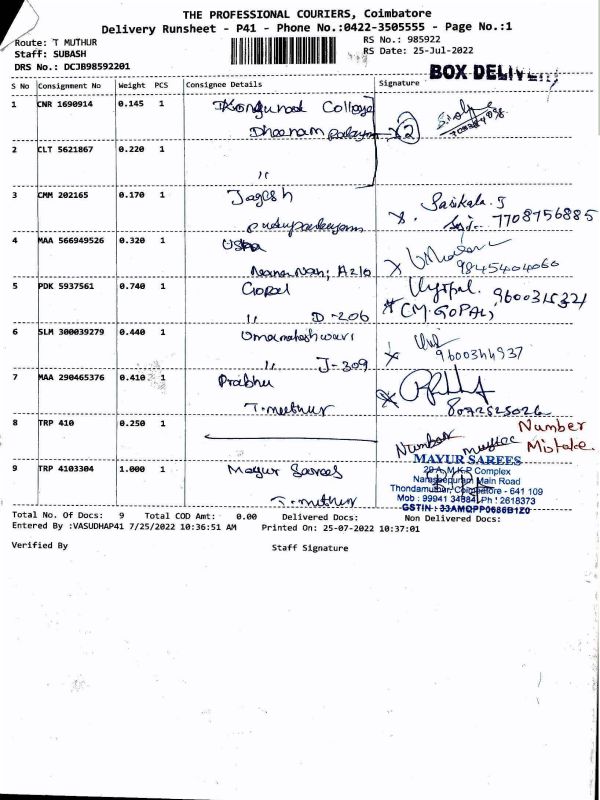 THE PROFESSIONAL COURIERS, Coimbatore
Delivery Runsheet - P41 - Phone No.:0422-3505555 - Page No.:1
Route: T MUTHUR
RS No.: 985922
Staff: SUBASH
RS Date: 25-Jul-2022
DRS No.: DCJB98592201
BOX DELIVERY
S No Consignment No Weight PCS Consignee Details Signature
1 CNR 1690914 0.145 1 Kongunad College
Dheenam palayam x 2
2 CLT 5621867 0.220 1
"
3 CMM 202165 0.170 1 Jagesh Sasikala. S
pudupalayam x. 7708756885
4 MAA 566949526 0.320 1 Usha
A210 x 9845404060
5 PDK 5937561 0.740 1 Gopal 9600315321
" D-206 (M. GOPAL)
6 SLM 300039279 0.440 1 Umamaheshwari
" J-309 x 9600344937
7 MAA 290465376 0.410 1 Prabhu
T.muthur 8072525026
8 TRP 410 0.250 1 Number
Number Mistake.
9 TRP 4103304 1.000 1 Mayur Sarees MAYUR SAREES
29 A, M.K.P Complex
Naraseepuram Main Road
Thondamuthur, Coimbatore - 641 109
T.muthur Mob : 99941 34884, Ph : 2618373
GSTIN : 33AMQPP0686B1Z0
Total No. Of Docs: 9 Total COD Amt: 0.00 Delivered Docs: Non Delivered Docs:
Entered By :VASUDHAP41 7/25/2022 10:36:51 AM Printed On: 25-07-2022 10:37:01
Verified By Staff Signature